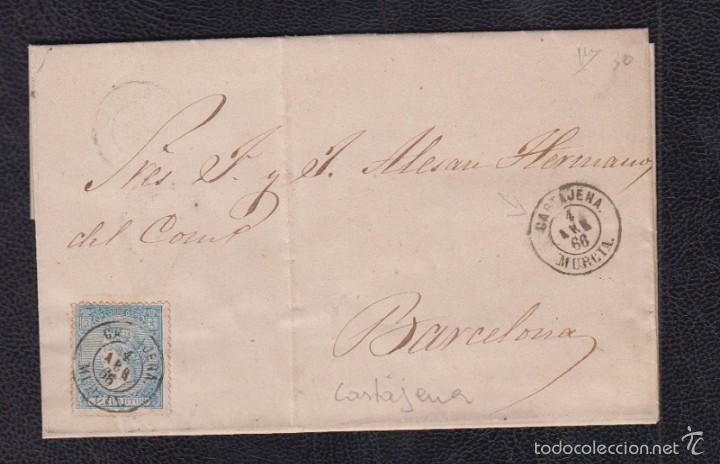 30
Sres J. y J. Alesan Hermanos
del Comº
CARTAJENA.
4
ABR
66
MURCIA.
CARTAJENA.
4
ABR
66
MURCIA.
Barcelona
Cartajena
todocoleccion.net